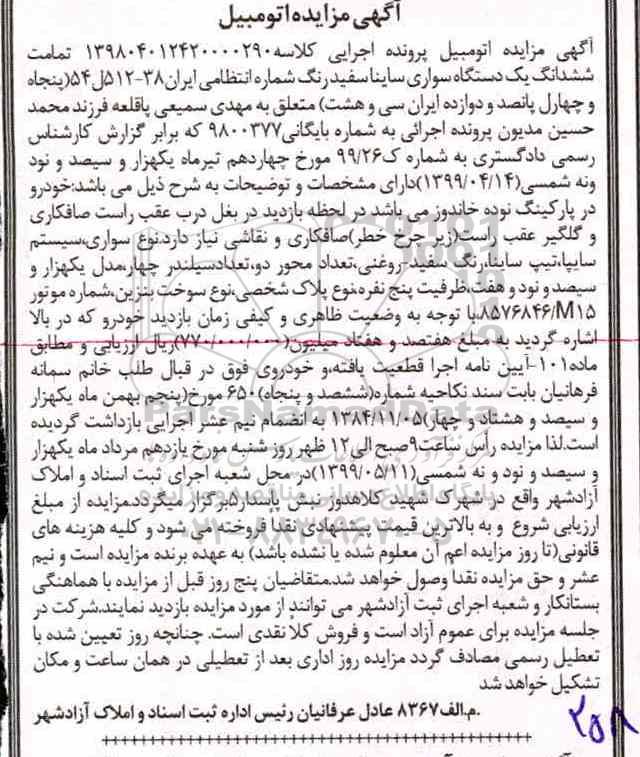 آگهی مزایده اتومبیل
آگهی مزایده اتومبیل پرونده اجرایی کلاسه۱۳۹۸۰۴۰۱۲۴۲۰۰۰۰۲۹۰ تمامت
ششدانگ یک دستگاه سواری ساینا سفید رنگ شماره انتظامی ایران۳۸-۵۱۲ل۵۴(پنجاه
و چهارل پانصد و دوازده ایران سی و هشت) متعلق به مهدی سمیعی پاقلعه فرزند محمد
حسین مدیون پرونده اجرائی به شماره بایگانی۹۸۰۰۳۷۷ که برابر گزارش کارشناس
رسمی دادگستری به شماره ک۹۹/۲۶ مورخ چهاردهم تیرماه یکهزار و سیصد و نود
ونه شمسی(۱۳۹۹/۰۴/۱۴)دارای مشخصات و توضیحات به شرح ذیل می باشد:خودرو
در پارکینگ نوده خاندوز می باشد در لحظه بازدید در بغل درب عقب راست صافکاری
و گلگیر عقب راست(زیر چرخ خطر)صافکاری و نقاشی نیاز دارد.نوع سواری،سیستم
سایپا،تیپ ساینا،رنگ سفید-روغنی،تعداد محور دو،تعدادسیلندر چهار،مدل یکهزار و
سیصد و نود و هفت،ظرفیت پنج نفره،نوع پلاک شخصی،نوع سوخت بنزین،شماره موتور
۸۵۷۶۸۴۶/M۱۵.با توجه به وضعیت ظاهری و کیفی زمان بازدید خودرو که در بالا
اشاره گردید به مبلغ هفتصد و هفتاد میلیون(۷۷۰/۰۰۰/۰۰۰)ریال ارزیابی و مطابق
ماده۱۰۱-آیین نامه اجرا قطعیت یافته،و خودروی فوق در قبال طلب خانم سمانه
فرهانیان بابت سند نکاحیه شماره(ششصد و پنجاه)۶۵۰ مورخ(پنجم بهمن ماه یکهزار
و سیصد و هشتاد و چهار)۱۳۸۴/۱۱/۰۵ به انضمام نیم عشر اجرایی بازداشت گردیده
است.لذا مزایده رأس ساعت۹صبح الی۱۲ ظهر روز شنبه مورخ یازدهم مرداد ماه یکهزار
و سیصد و نود و نه شمسی(۱۳۹۹/۰۵/۱۱)در محل شعبه اجرای ثبت اسناد و املاک
آزادشهر واقع در شهرک شهید کلاهدوز نبش پاسدار۵برگزار میگردد.مزایده از مبلغ
ارزیابی شروع و به بالاترین قیمت پیشنهادی نقدا فروخته می شود و کلیه هزینه های
قانونی(تا روز مزایده اعم آن معلوم شده یا نشده باشد) به عهده برنده مزایده است و نیم
عشر و حق مزایده نقدا وصول خواهد شد.متقاضیان پنج روز قبل از مزایده با هماهنگی
بستانکار و شعبه اجرای ثبت آزادشهر می توانند از مورد مزایده بازدید نمایند.شرکت در
جلسه مزایده برای عموم آزاد است و فروش کلا نقدی است. چنانچه روز تعیین شده با
تعطیل رسمی مصادف گردد مزایده روز اداری بعد از تعطیلی در همان ساعت و مکان
تشکیل خواهد شد
.م.الف۸۳۶۷ عادل عرفانیان رئیس اداره ثبت اسناد و املاک آزادشهر
۲۵۸
ParsNamadData
۰۲۱-۸۸۳۴۹۶۷۰-۵